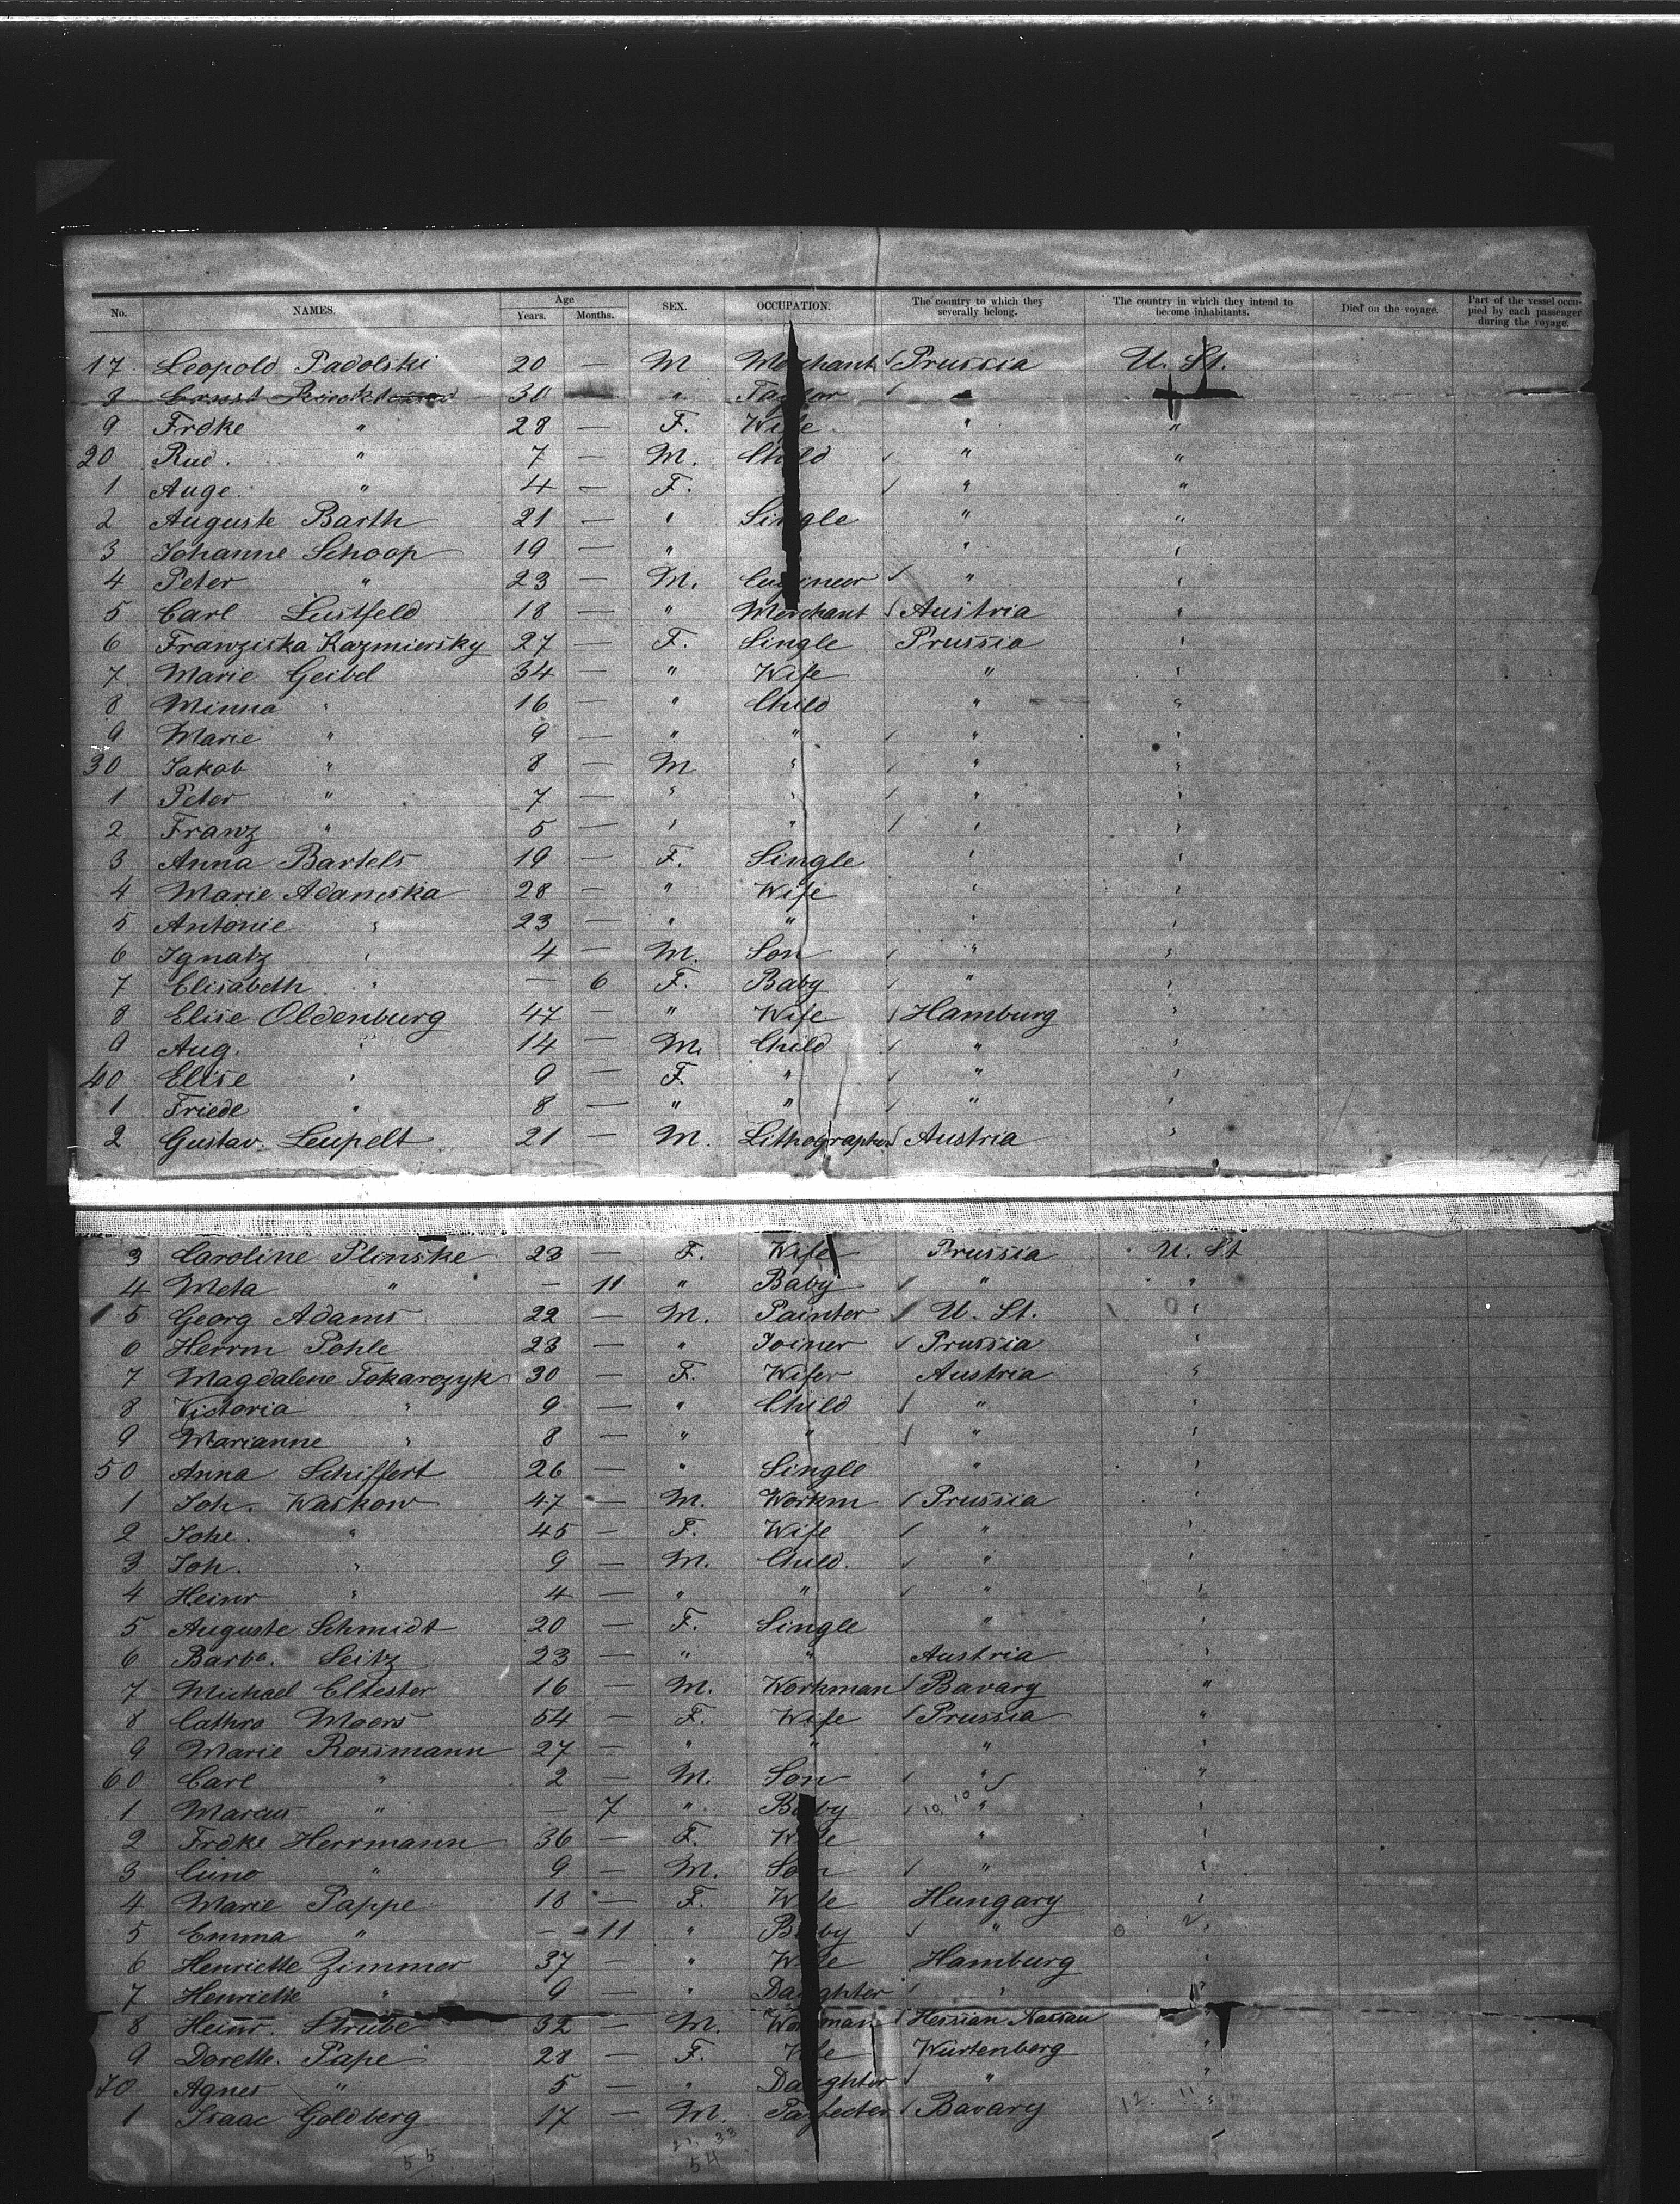 No. NAMES. Age Years. Months. SEX. OCCUPATION. The country to which they severally belong. The country in which they intend to become inhabitants. Died on the voyage. Part of the vessel occupied by each passenger during the voyage.
17 Leopold Padolski 20 — M Merchant Prussia U. St.
8 Ernst 30 " Taylor "
9 Frdke " 28 — F. Wife " "
20 Rud. " 7 — M. Child " "
1 Auge. " 4 — F. " "
2 Auguste Barth 21 — " Single " "
3 Johanne Schoop 19 — " " "
4 Peter " 23 — M. Engineer " "
5 Carl Lustfeld 18 — " Merchant Austria "
6 Franziska Kazmiersky 27 — F. Single Prussia "
7 Marie Geibel 34 — " Wife " "
8 Minna " 16 — " Child " "
9 Marie " 9 — " " " "
30 Jakob " 8 — M " " "
1 Peter " 7 — " " " "
2 Franz " 5 — " " " "
3 Anna Bartels 19 — F. Single " "
4 Marie Adamska 28 — " Wife " "
5 Antonie " 23 — " " " "
6 Ignatz " 4 — M. Son " "
7 Elisabeth " — 6 F. Baby " "
8 Elise Oldenburg 47 — " Wife Hamburg "
9 Aug. " 14 — M. Child " "
40 Elise " 9 — F. " " "
1 Friede " 8 — " " " "
2 Gustav Leupelt 21 — M. Lithographer Austria "
3 Caroline Plinske 23 — F. Wife Prussia U. St
4 Meta " — 11 " Baby " "
5 Georg Adams 22 — M. Painter U. St. "
6 Herrm Pohle 23 — " Joiner Prussia "
7 Magdalene Tokarczyk 30 — F. Wife Austria "
8 Victoria " 9 — " Child " "
9 Marianne " 8 — " " " "
50 Anna Schiffert 26 — " Single " "
1 Joh. Waskow 47 — M. Workm Prussia "
2 Johe. " 45 — F. Wife " "
3 Joh. " 9 — M. Child. " "
4 Heinr " 4 — " " " "
5 Auguste Schmidt 20 — F. Single " "
6 Barba. Seitz 23 — " " Austria "
7 Michael Eltester 16 — M. Workman Bavary "
8 Cathra Moers 54 — F. Wife Prussia "
9 Marie Rossmann 27 — " " " "
60 Carl " 2 — M. Son " "
1 " — 7 " Baby 10. 10 " "
2 Frdke Herrmann 36 — F. Wife " "
3 Cuno " 9 — M. Son " "
4 Marie Pappe 18 — F. Wife Hungary "
5 Emma " — 11 " Baby " "
6 Henriette Zimmer 37 — " Wife Hamburg "
7 Henriette " 9 — " Daughter " "
8 Heinr. Strube 32 — M. Workman Hessian Nassau
9 Dorette. Pape 28 — F. Wife Wurtenberg "
70 Agnes " 5 — " Daughter " "
1 Isaac Goldberg 17 — M. Bavary 12. 11. "
55 21. 33
54